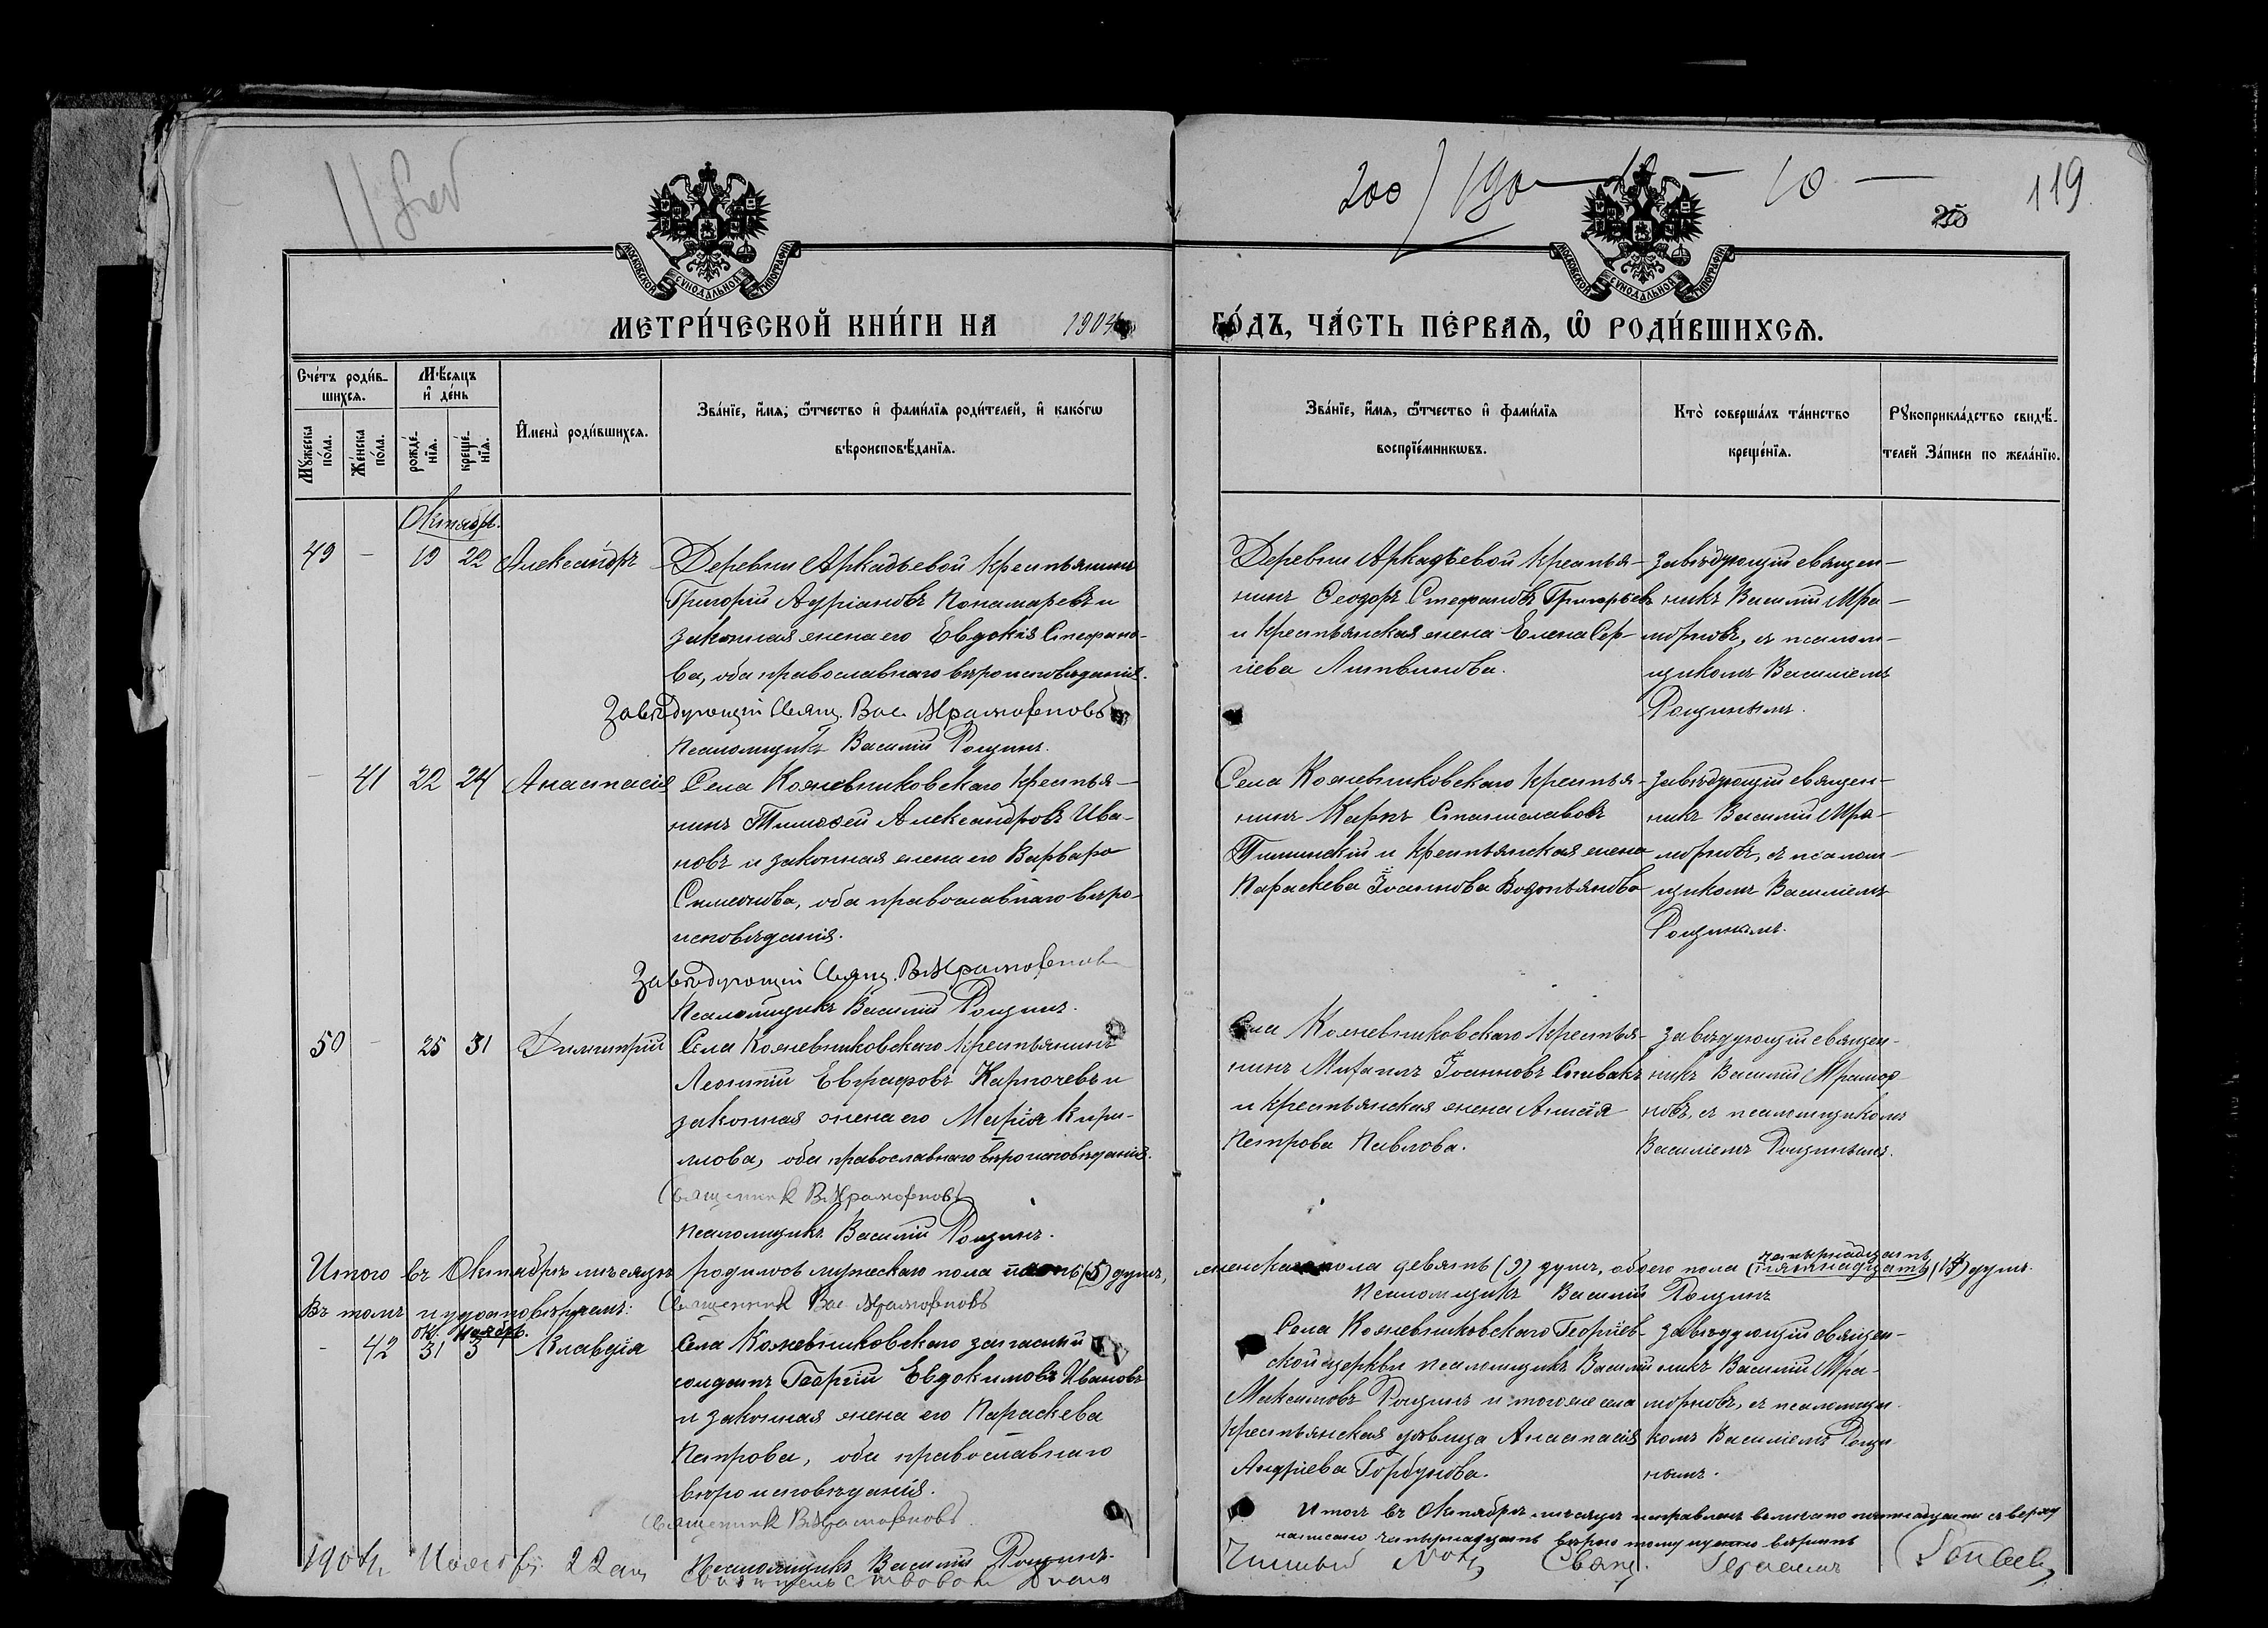 200
119.
МОСКОВСКОЙ СѴНОДАЛЬНОЙ ТИПОГРАФІИ
МОСКОВСКОЙ СѴНОДАЛЬНОЙ ТИПОГРАФІИ
МЕТРИ́ЧЕСКОЙ КНИ́ГИ НА 1904
ГО́ДЪ, ЧА́СТЬ ПЕ́РВАѦ, Ѽ РОДИ́ВШИХСѦ.
Сче́тъ роди́в-
шихсѧ.
Мꙋ́жеска по́ла.
Же́нска по́ла.
Мѣ́сѧцъ
и҆ де́нь
рожде́-
нїѧ.
креще́-
нїѧ.
И҆мена̀ роди́вшихсѧ.
Зва́нїе, и҆́мѧ, ѻ҆́тчество и҆ фами́лїѧ роди́телей, и҆ како́гѡ
вѣроисповѣ́данїѧ.
Зва́нїе, и҆́мѧ, ѻ҆́тчество и҆ фами́лїѧ
воспрїе́мникѡвъ.
Кто̀ соверша́лъ та́инство
креще́нїѧ.
Рꙋкоприкла́дство свидѣ́-
телей За́писи по жела́нїю.
Октябрь.
49 - 19 22 Александръ
Деревни Аркадьевой крестьянинъ
Григорій Адріановъ Понамаревъ и
законная жена его Евдокія Стефано-
ва, оба православнаго вѣроисповѣданія.
Завѣдующій Свящ. Вас. Мраморновъ
Псаломщикъ Василій Рощинъ.
Деревни Аркадьевой крестья-
нинъ Ѳеодоръ Стефановъ Григорьевъ
и крестьянская жена Елена Сер-
гіева Литвинова.
Завѣдующій священ-
никъ Василій Мра-
морновъ, съ псалом-
щикомъ Василіемъ
Рощинымъ.
- 41 22 24 Анастасія
Села Кожевниковскаго крестья-
нинъ Тимоѳей Александровъ Ива-
новъ и законная жена его Варвара
Симеонова, оба православнаго вѣро-
исповѣданія.
Завѣдующій Свящ. В. Мраморновъ
Псаломщикъ Василій Рощинъ.
Села Кожевниковскаго крестья-
нинъ Карпъ Станиславовъ
и крестьянская жена
Параскева Іоаннова Водопьянова
Завѣдующій священ-
никъ Василій Мра-
морновъ, съ псалом-
щикомъ Василіемъ
Рощинымъ.
50 - 25 31 Димитрій
Села Кожевниковскаго крестьянинъ
Леонтій Евграфовъ Карпочевъ и
законная жена его Марія Кири-
лова, оба православнаго вѣроисповѣданія.
Священникъ В. Мраморновъ
Псаломщикъ Василій Рощинъ.
Села Кожевниковскаго крестья-
нинъ Михаилъ Іоанновъ Спивакъ
и крестьянская жена Анисія
Петрова Павлова.
Завѣдующій священ-
никъ Василій Мрамор-
новъ, съ псаломщикомъ
Василіемъ Рощинымъ.
Итого въ Октябрѣ мѣсяцѣ родилось мужескаго пола пять (5) душъ,
женскаго пола девять (9) душъ, обоего пола (пятнадцать) четырнадцать душъ.
Въ томъ и удостовѣряемъ: Священникъ Вас. Мраморновъ
Псаломщикъ Василій Рощинъ
Ок. Ноябрь.
- 42 31 3 Клавдія
Села Кожевниковскаго запасный
солдатъ Георгій Евдокимовъ Ивановъ
и законная жена его Параскева
Петрова, оба православнаго
вѣроисповѣданія.
Священникъ В. Мраморновъ.
Псаломщикъ Василій Рощинъ.
Села Кожевниковскаго Георгіев-
ской церкви псаломщикъ Василій
Максимовъ Рощинъ и тогоже села
крестьянская дѣвица Анастасія
Андріева Горбунова.
Завѣдующій священ-
никъ Василій Мра-
морновъ, съ псаломщи-
комъ Василіемъ Рощи-
нымъ.
Итогъ въ Октябрѣ мѣсяцѣ
написано четырнадцать вѣрить
1904 г. Ноября 22 дня
Свящ.